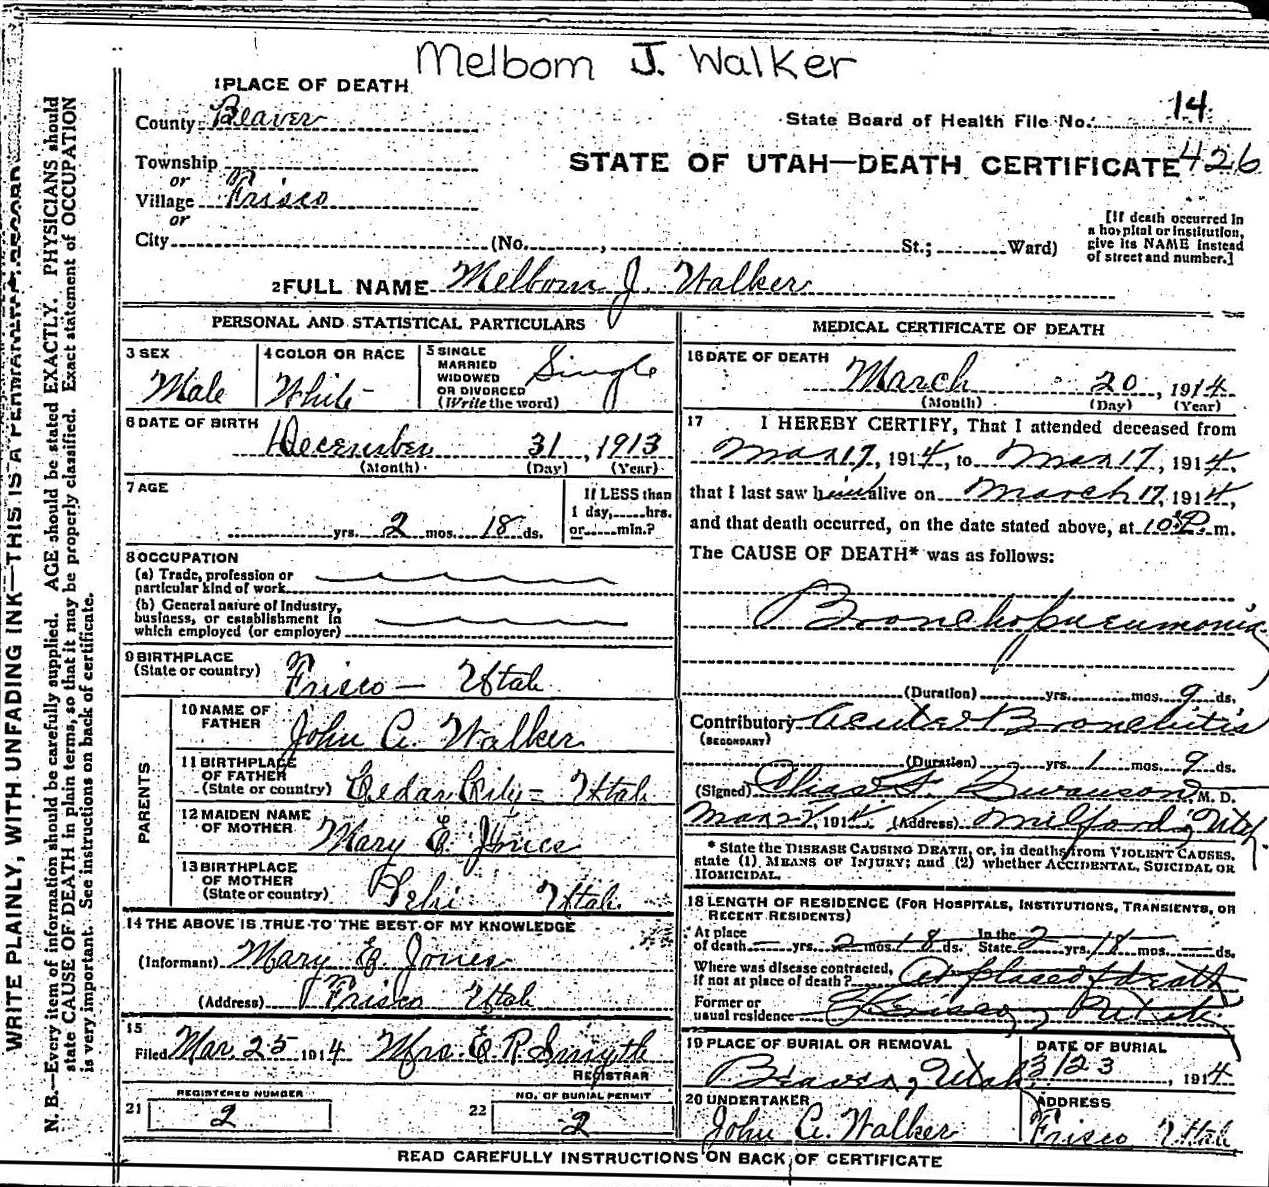 Melbom J. Walker
1 PLACE OF DEATH
County Beaver
State Board of Health File No. 14
Township
or
STATE OF UTAH—DEATH CERTIFICATE 426
Village Frisco
or
City (No. , St.; Ward)
[If death occurred in
a hospital or institution,
give its NAME instead
of street and number.]
2 FULL NAME Melbom J. Walker
PERSONAL AND STATISTICAL PARTICULARS
3 SEX
Male
4 COLOR OR RACE
White
5 SINGLE
MARRIED
WIDOWED
OR DIVORCED
(Write the word)
Single
6 DATE OF BIRTH
December 31, 1913
(Month) (Day) (Year)
7 AGE
yrs. 2 mos. 18 ds.
If LESS than
1 day, hrs.
or min.?
8 OCCUPATION
(a) Trade, profession or
particular kind of work
(b) General nature of Industry,
business, or establishment in
which employed (or employer)
9 BIRTHPLACE
(State or country)
Frisco — Utah
PARENTS
10 NAME OF
FATHER
John A. Walker
11 BIRTHPLACE
OF FATHER
(State or country) Cedar City - Utah
12 MAIDEN NAME
OF MOTHER Mary E. Jones
13 BIRTHPLACE
OF MOTHER
(State or country) Lehi Utah
14 THE ABOVE IS TRUE TO THE BEST OF MY KNOWLEDGE
(Informant) Mary E. Jones
(Address) Frisco Utah
15
Filed Mar. 25 1914 Mrs. E. R. Smyth
REGISTRAR
REGISTERED NUMBER
21 2
NO. OF BURIAL PERMIT
22 2
MEDICAL CERTIFICATE OF DEATH
16 DATE OF DEATH
March 20, 1914
(Month) (Day) (Year)
17 I HEREBY CERTIFY, That I attended deceased from
Mar 17, 1914, to Mar 17, 1914,
that I last saw him alive on March 17, 1914,
and that death occurred, on the date stated above, at 10 P. m.
The CAUSE OF DEATH* was as follows:
Bronchopneumonia
(Duration) yrs. mos. 9 ds.
Contributory Acute Bronchitis
(SECONDARY)
(Duration) yrs. 1 mos. 9 ds.
(Signed) Swanson, M. D.
1914 (Address) Milford, Utah.
* State the DISEASE CAUSING DEATH, or, in deaths from VIOLENT CAUSES,
state (1) MEANS OF INJURY; and (2) whether ACCIDENTAL, SUICIDAL OR
HOMICIDAL.
18 LENGTH OF RESIDENCE (FOR HOSPITALS, INSTITUTIONS, TRANSIENTS, OR
RECENT RESIDENTS)
At place
of death — yrs. 2 mos. 18 ds. In the State 2 yrs. 18 mos. — ds.
Where was disease contracted,
if not at place of death? At place of death
Former or
usual residence Frisco, Utah
19 PLACE OF BURIAL OR REMOVAL
Beaver, Utah
DATE OF BURIAL
3/23, 1914
20 UNDERTAKER
John A. Walker
ADDRESS
Frisco Utah
READ CAREFULLY INSTRUCTIONS ON BACK OF CERTIFICATE
WRITE PLAINLY, WITH UNFADING INK—THIS IS A PERMANENT RECORD
N. B.—Every item of information should be carefully supplied. AGE should be stated EXACTLY. PHYSICIANS should
state CAUSE OF DEATH in plain terms, so that it may be properly classified. Exact statement of OCCUPATION
is very important. See instructions on back of certificate.